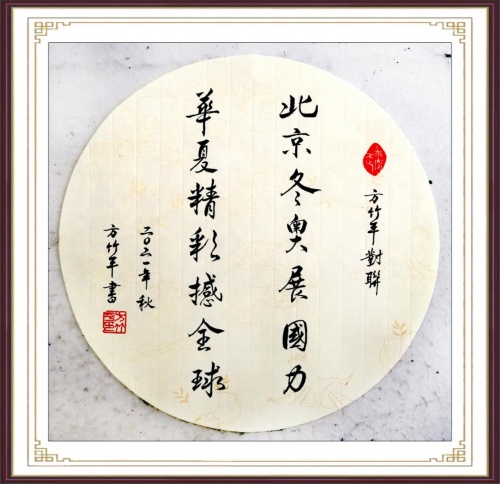 方竹年對聯
北京冬奧展國力
華夏精彩撼全球
二〇二一年秋
方竹年書